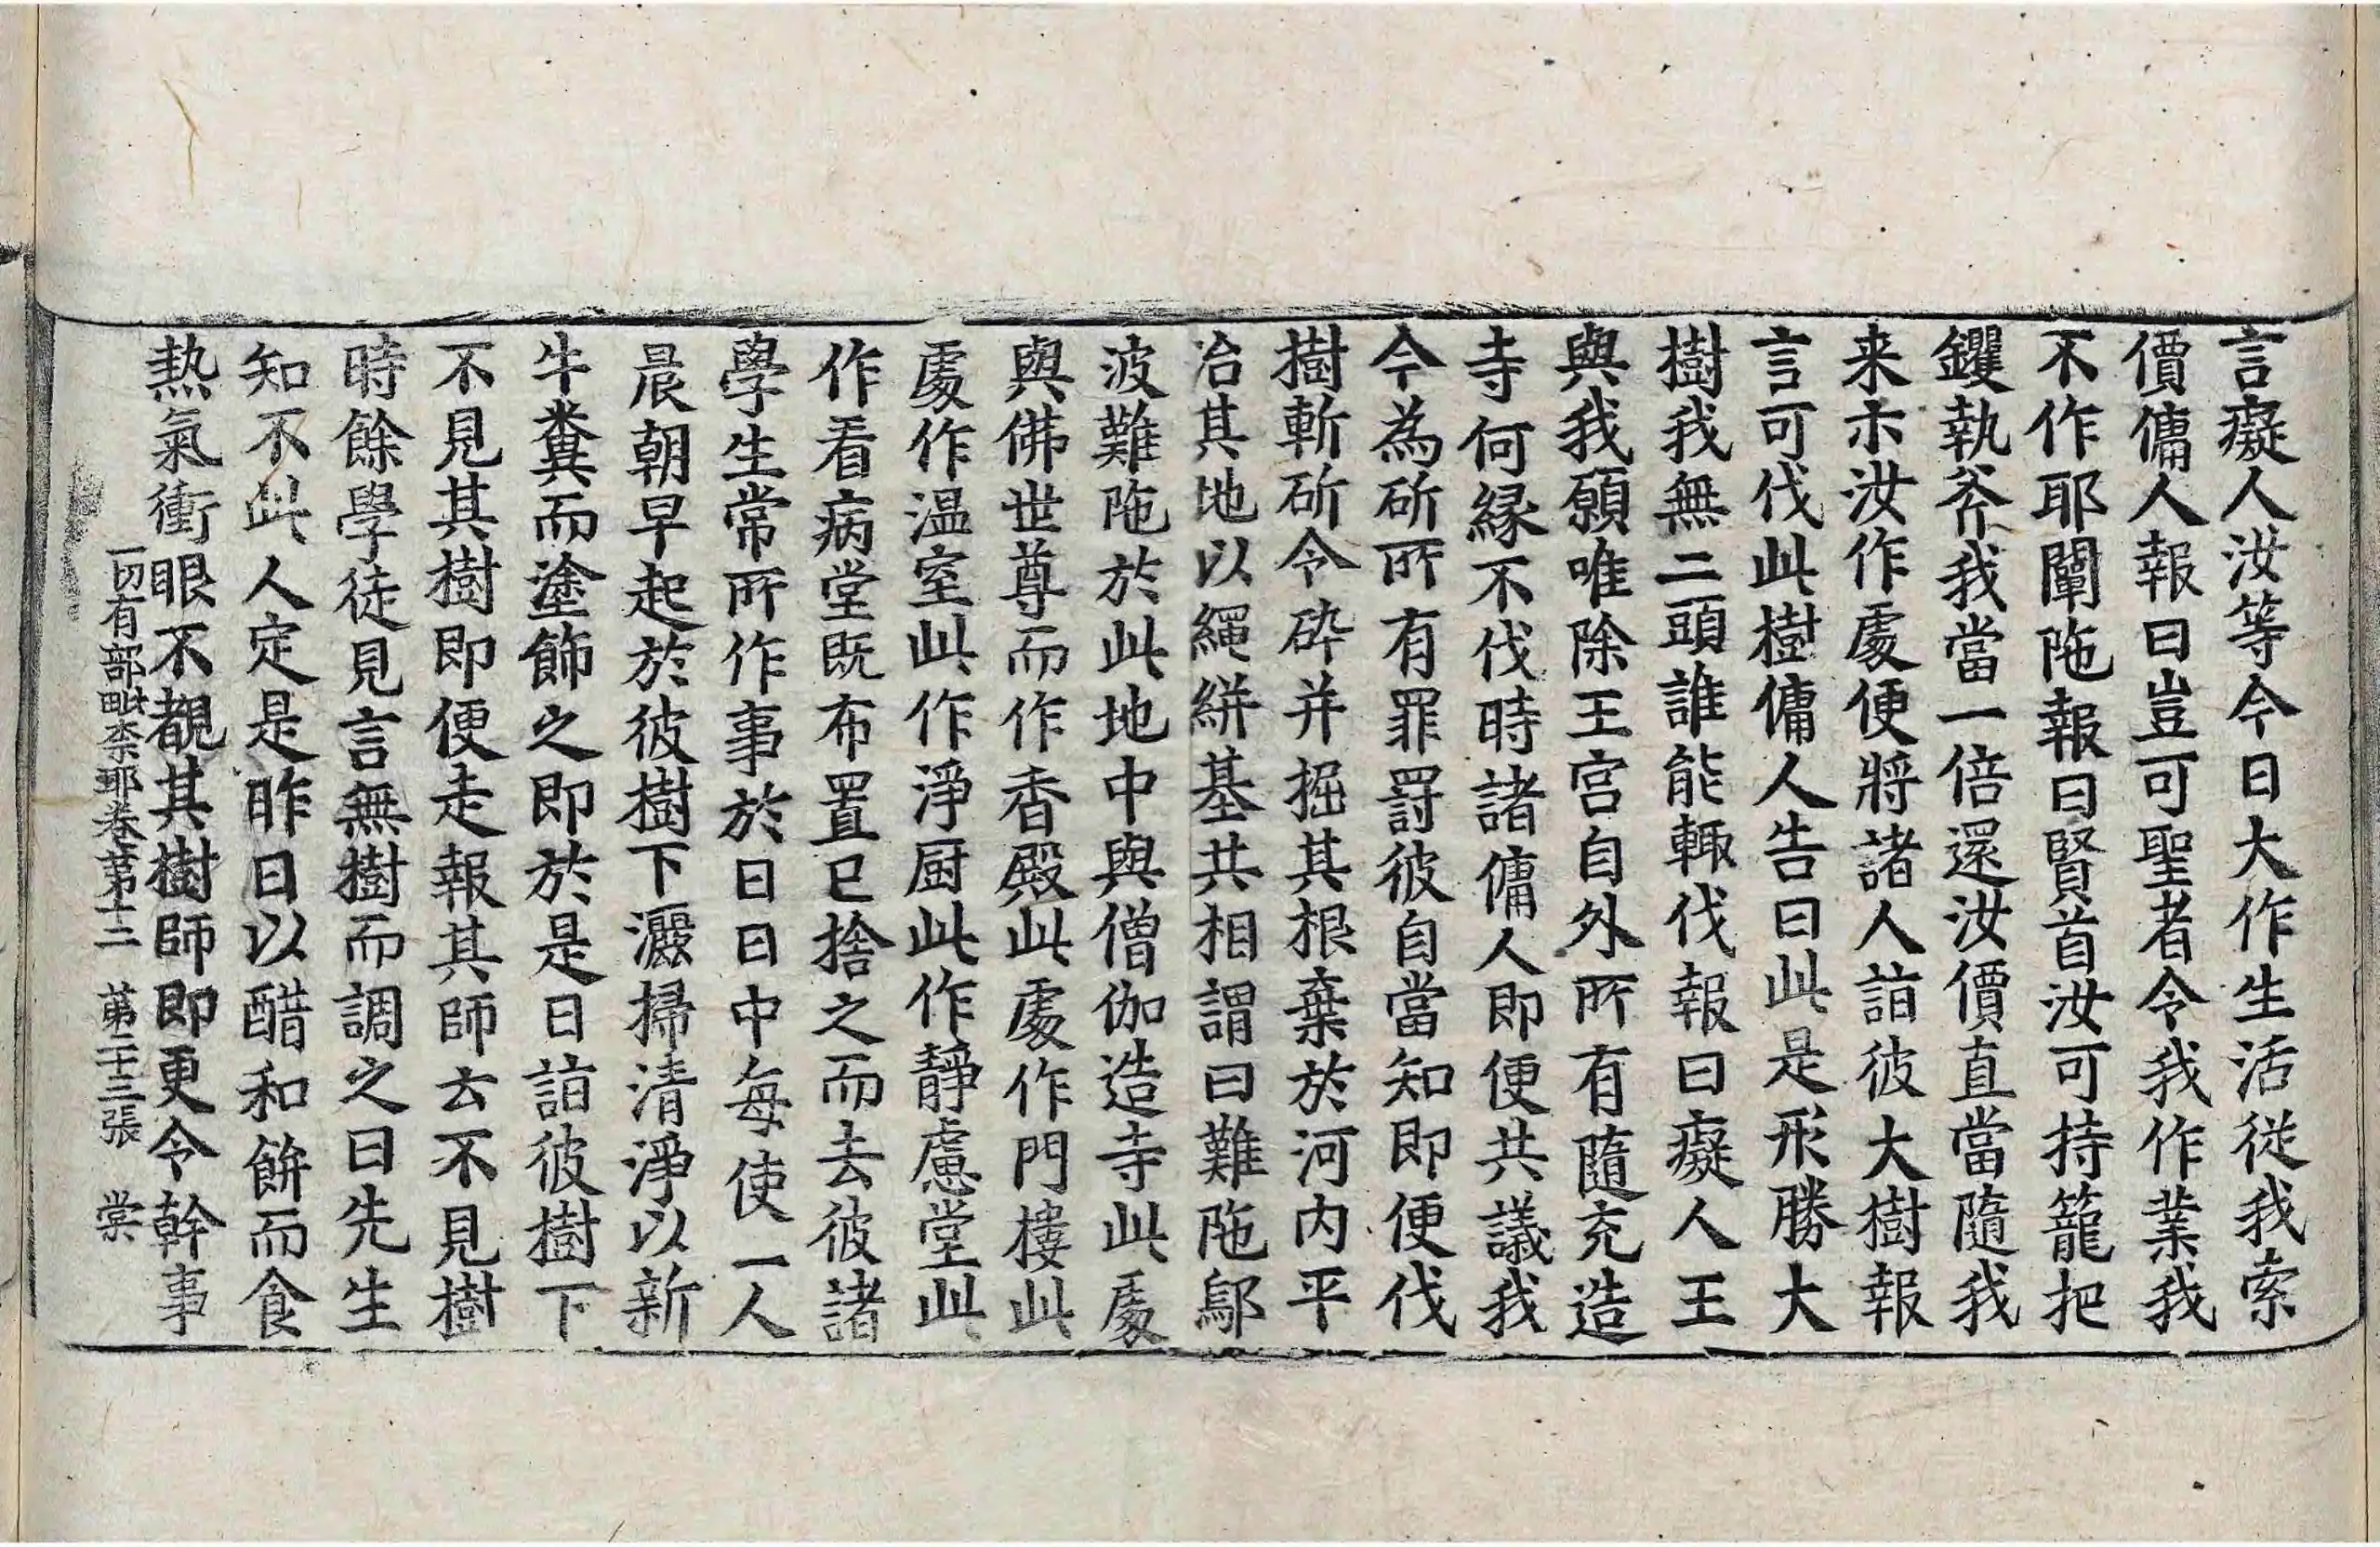 言癡人汝等今日大作生活從我索
價傭人報曰豈可聖者令我作業我
不作耶闡陁報曰賢首汝可持籠把
钁執斧我當一倍還汝價直當隨我
来示汝作處便將諸人詣彼大樹報
言可伐此樹傭人告曰此是形勝大
樹我無二頭誰能輙伐報曰癡人王
與我願唯除王宫自外所有隨充造
寺何縁不伐時諸傭人即便共議我
今為斫所有罪罸彼自當知即便伐
樹斬斫令碎并掘其根棄於河内平
治其地以繩絣基共相謂曰難陁鄔
波難陁於此地中與僧伽造寺此處
與佛世尊而作香殿此處作門樓此
處作温室此作淨厨此作靜慮堂此
作看病堂既布置已捨之而去彼諸
學生常所作事於日日中每使一人
晨朝早起於彼樹下灑掃清淨以新
牛糞而塗飾之即於是日詣彼樹下
不見其樹即便走報其師云不見樹
時餘學徒見言無樹而調之曰先生
知不此人定是昨日以醋和餅而食
熱氣衝眼不覩其樹師即更令幹事
一切有部毗柰耶卷第十二　第二十三張　棠